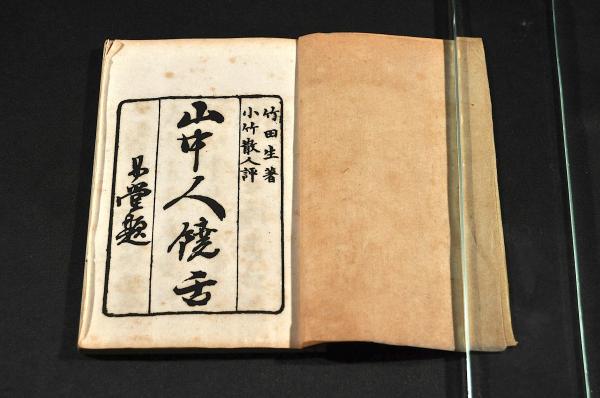 竹田生著
小竹散人評
山中人饒舌
易堂題